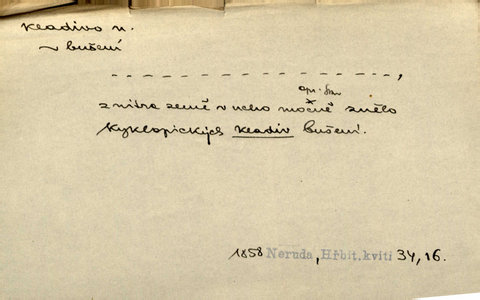 kladivo n.
~ bušení
- - - - - - - - - - - - - - - - - - - - ,
z nitra země v ucho mocně znělo
kyklopických kladiv bušení.
1858 Neruda, Hřbit. kvítí 34, 16.